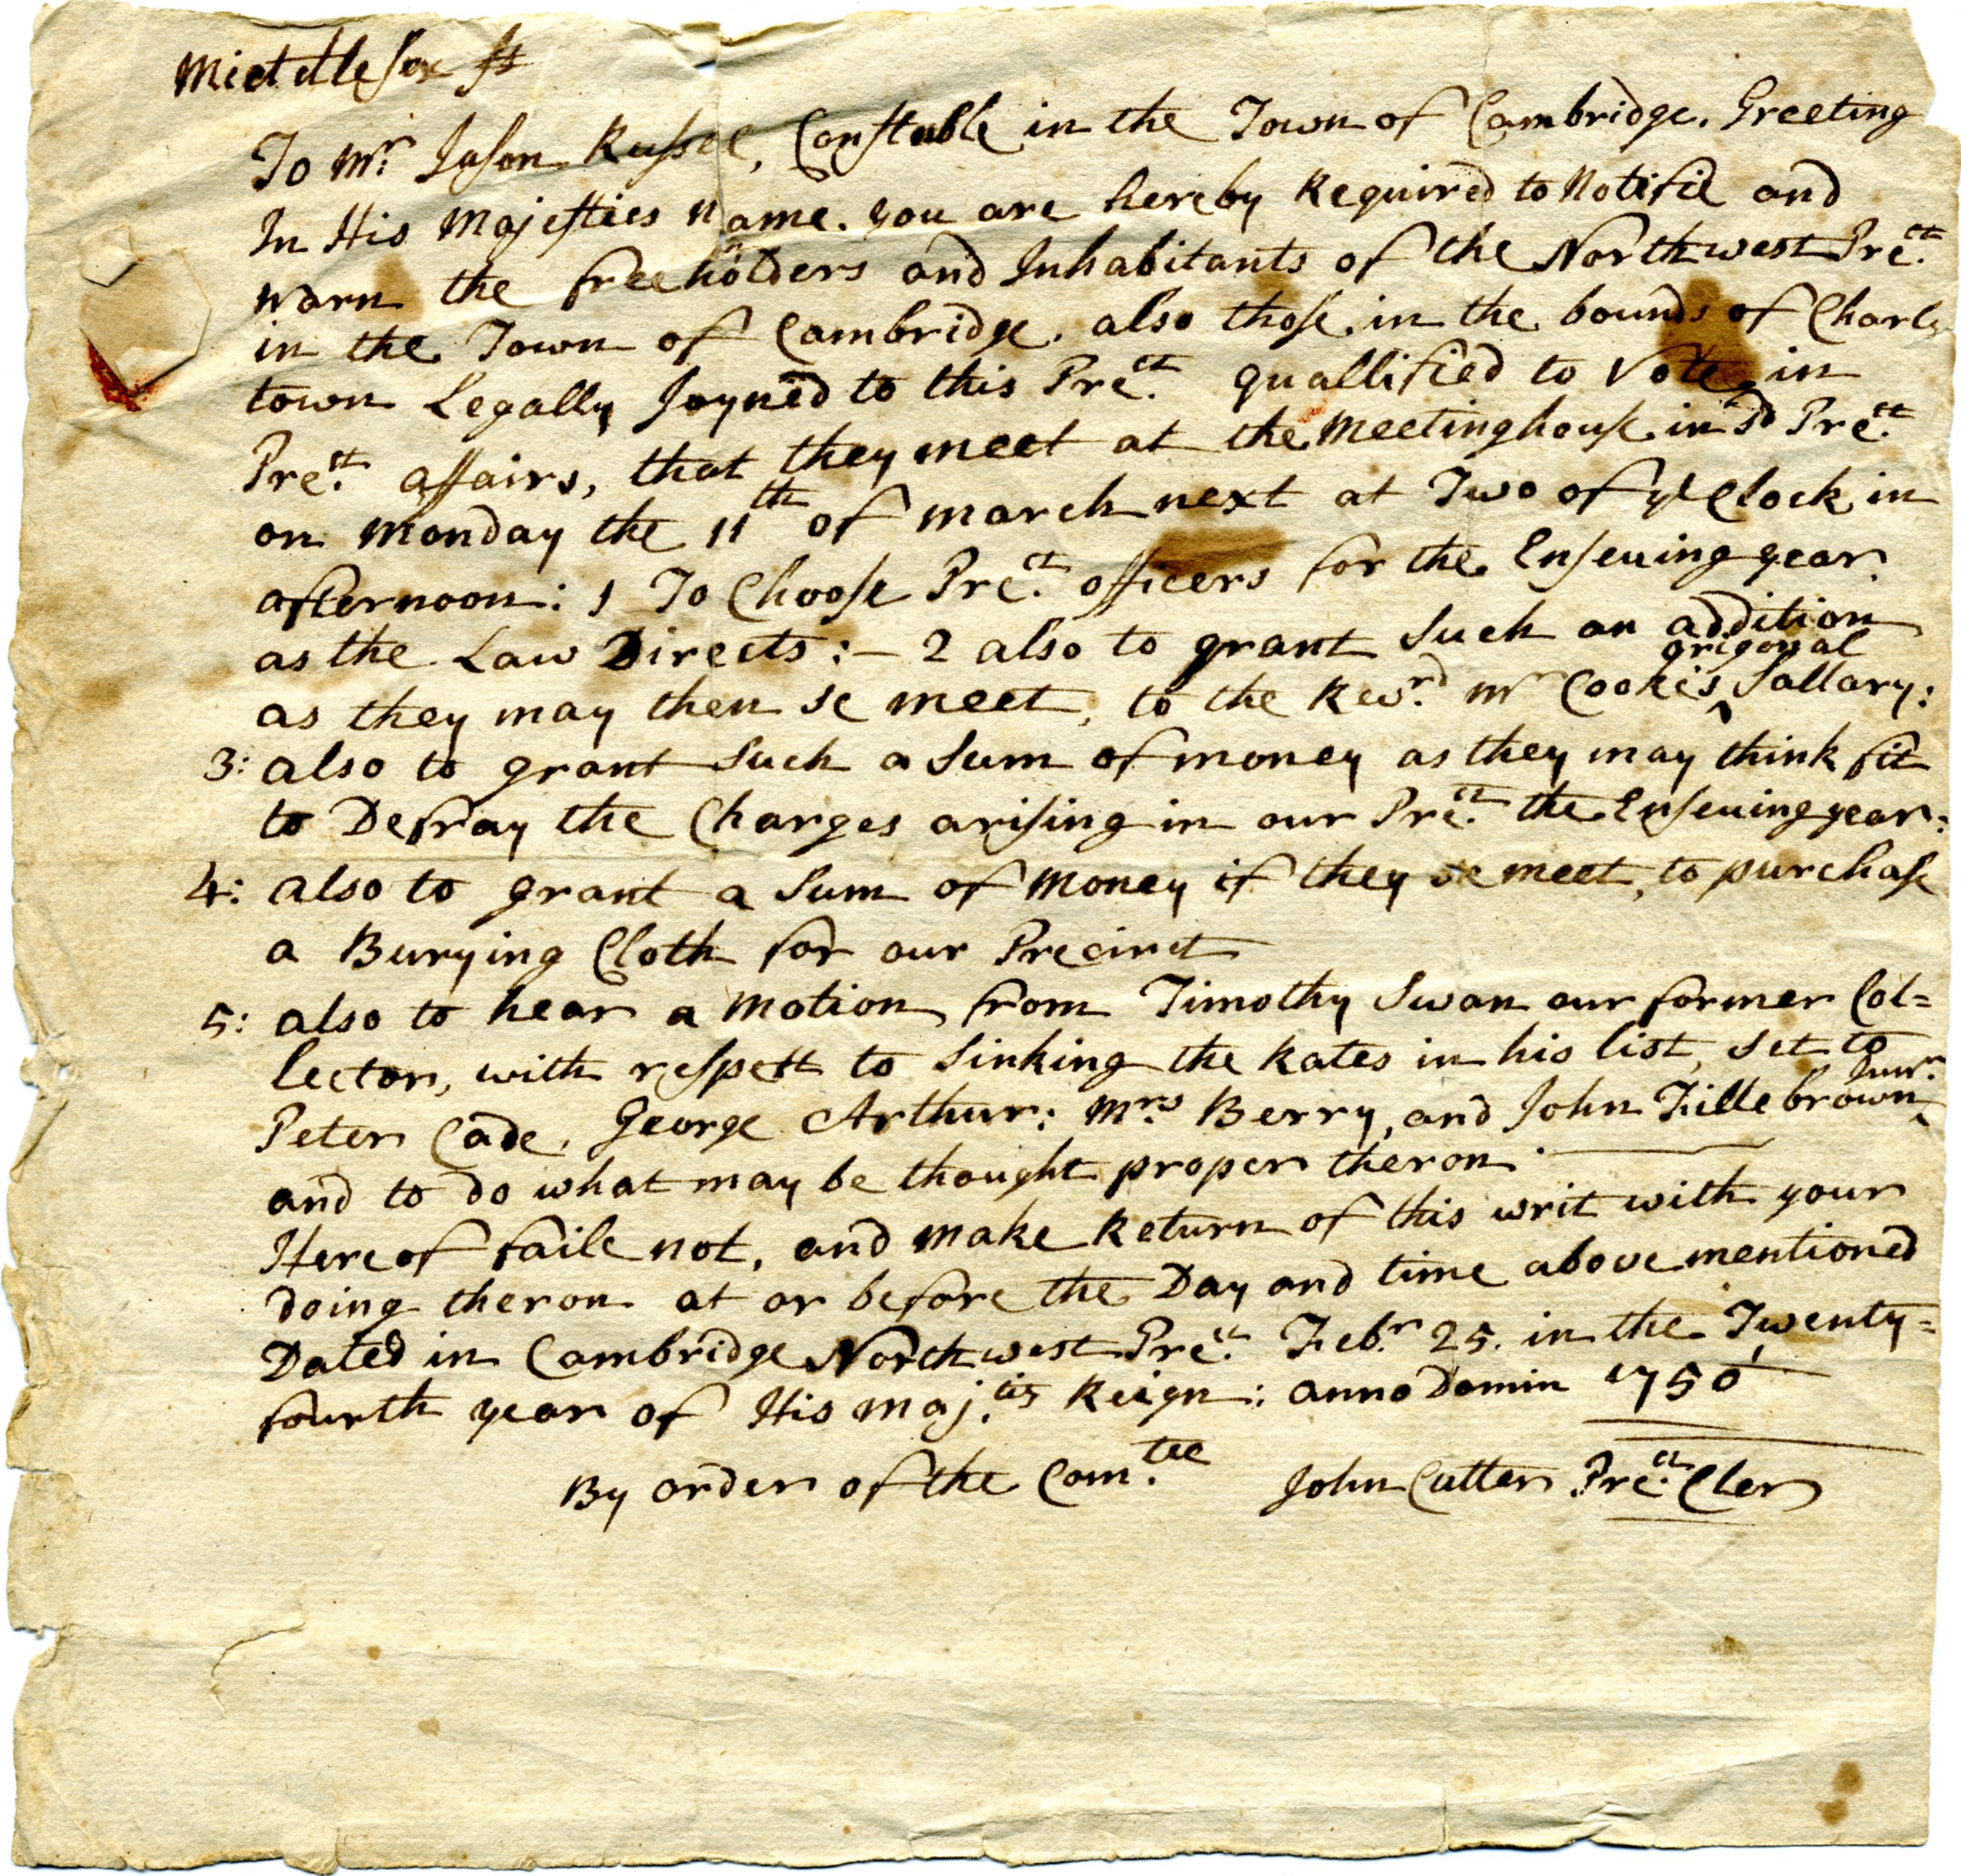 Middlesex ss
To Mr. Jason Russel, Constable in the Town of Cambridge. Greeting
In His Majesties name. you are hereby Required to Notifie and
warn the freeholders and Inhabitants of the Northwest Prect.
in the Town of Cambridge. also those in the bounds of Charls
town Legally Joyned to this Prect. quallified to Vote, in
Prect. affairs, that they meet at the meetinghouse in sd Prect.
on monday the 11th of march next at Two of ye Clock in
afternoon: 1 To Choose Prect. officers for the Enseuing year.
as the Law Directs:- 2 also to grant Such an addition
as they may then se meet, to the Revrd. mr Cooke's origonal Sallary:
3: also to grant Such a Sum of money as they may think fit
to Defray the Charges arising in our Prect. the Enseuing year:
4: also to grant a Sum of money if they se meet, to purchase
a Burying Cloth for our Precinct
5: also to hear a motion from Timothy Swan our former Col=
lector, with respect to Sinking the Rates in his list, set to
Peter Cade, George Arthur: Mrs. Berry, and John Fillebrown Junr.
and to do what may be thought proper theron.
Hereof faile not, and make Return of this writ with your
doing theron at or before the Day and time above mentioned
Dated in Cambridge Northwest Prect. Febr. 25. in the Twenty=
fourth year of His maj.ties Reign: anno Domin 1750
By order of the Com.tee John Cutter Prect. Cler